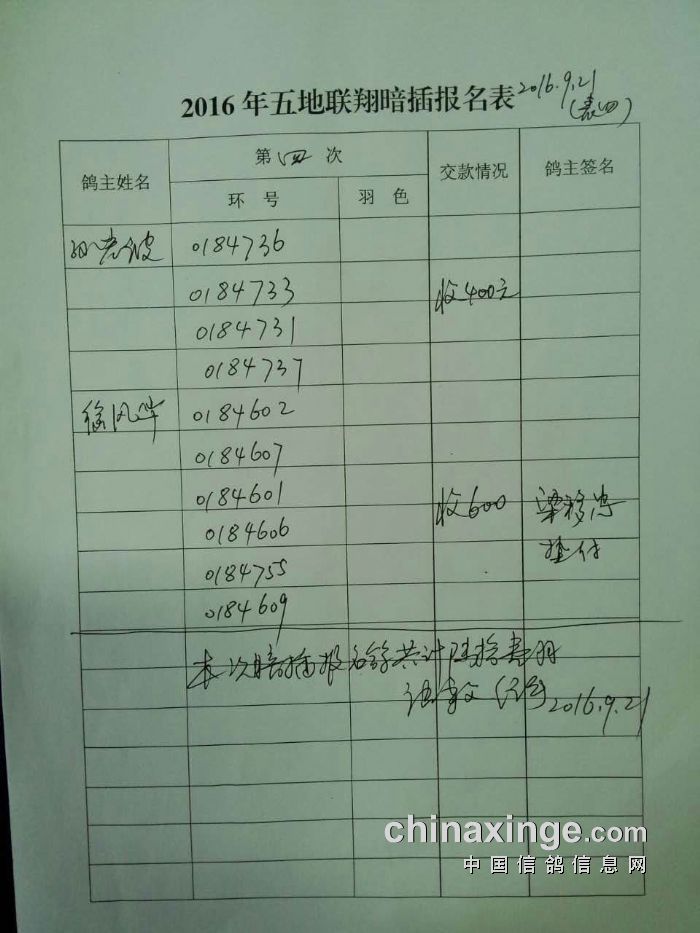 2016年五地联翔暗插报名表 2016.9.21
(表四)
鸽主姓名 第四次 交款情况 鸽主签名
环号 羽色
0184736
0184733 收400元
0184731
0184737
徐风 0184602
0184607
0184601 收600 梁移忠
0184606 垫付
0184755
0184609
本次暗插报名鸽共计陆拾壹羽
2016.9.21
chinaxinge.com
中国信鸽信息网